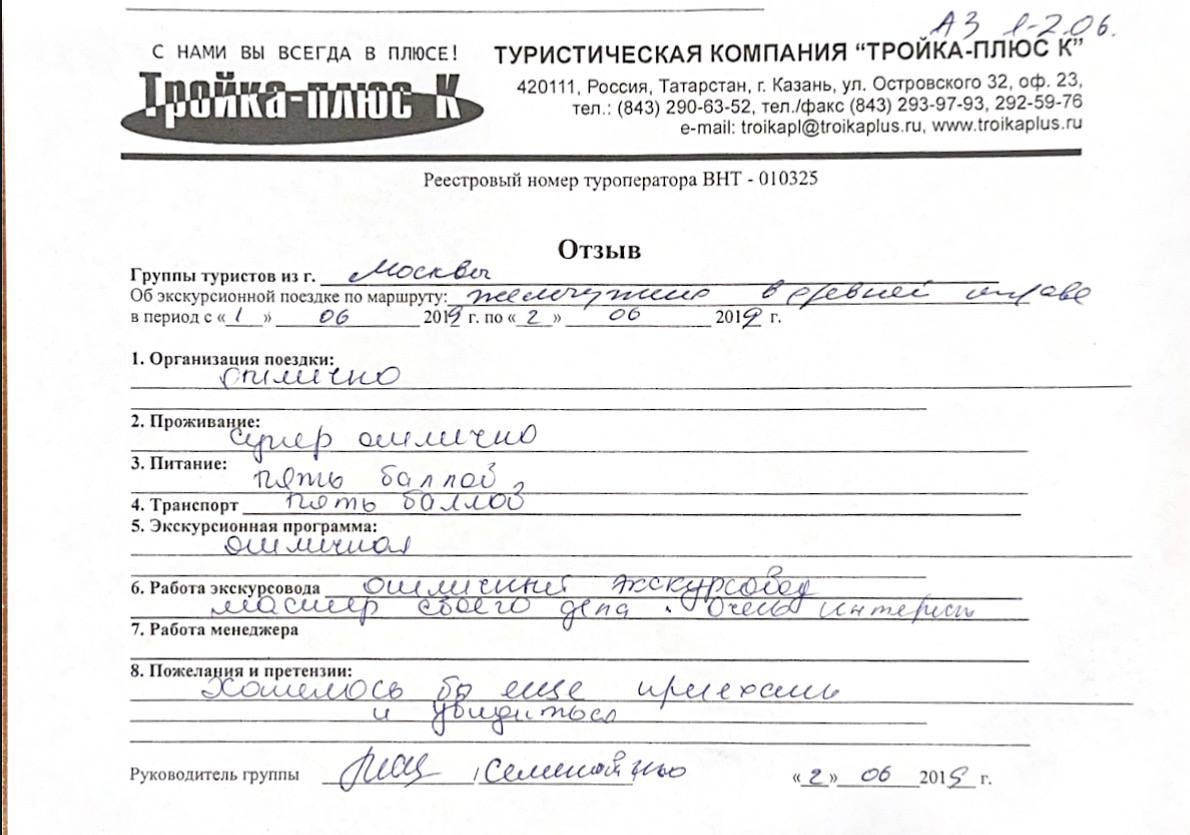 АЗ 1-2.06.
С НАМИ ВЫ ВСЕГДА В ПЛЮСЕ!
Тройка-плюс К
ТУРИСТИЧЕСКАЯ КОМПАНИЯ “ТРОЙКА-ПЛЮС К”
420111, Россия, Татарстан, г. Казань, ул. Островского 32, оф. 23,
тел.: (843) 290-63-52, тел./факс (843) 293-97-93, 292-59-76
e-mail: troikapl@troikaplus.ru, www.troikaplus.ru
Реестровый номер туроператора ВНТ - 010325
Отзыв
Группы туристов из г. Москвы
Об экскурсионной поездке по маршруту: жемчужина в древней оправе
в период с «1» 06 2019 г. по «2» 06 2019 г.
1. Организация поездки:
отлично
2. Проживание:
супер отлично
3. Питание:
пять баллов
4. Транспорт пять баллов
5. Экскурсионная программа:
отличная
6. Работа экскурсовода отличный экскурсовод
мастер своего дела. Очень интересн
7. Работа менеджера
8. Пожелания и претензии:
Хотелось бы еще приехать
и увидиться
Руководитель группы / / «2» 06 2019 г.